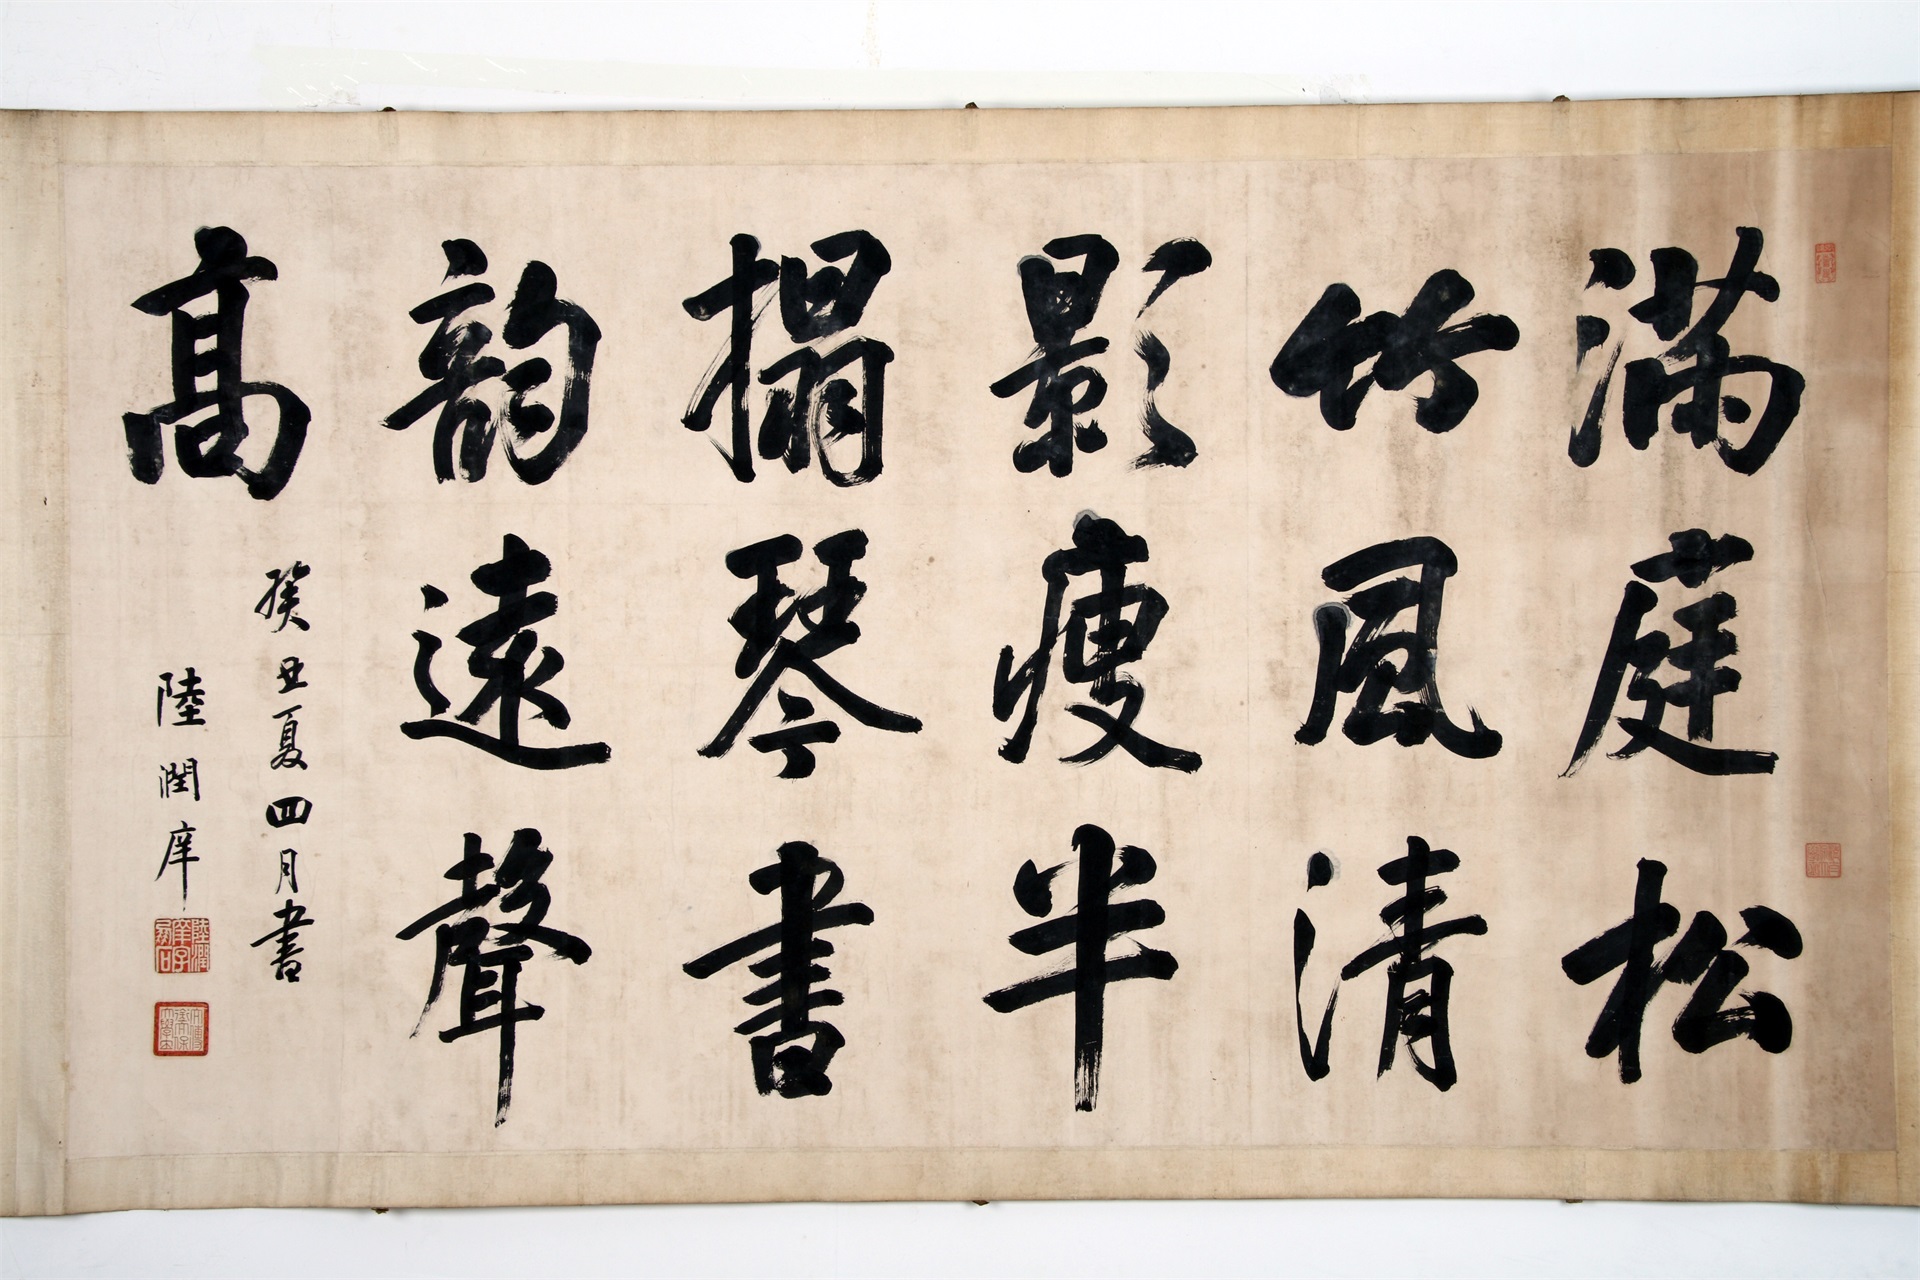 滿庭松
竹風清
影瘦半
搨琴書
韻遠聲
高
癸丑夏四月書
陸潤庠